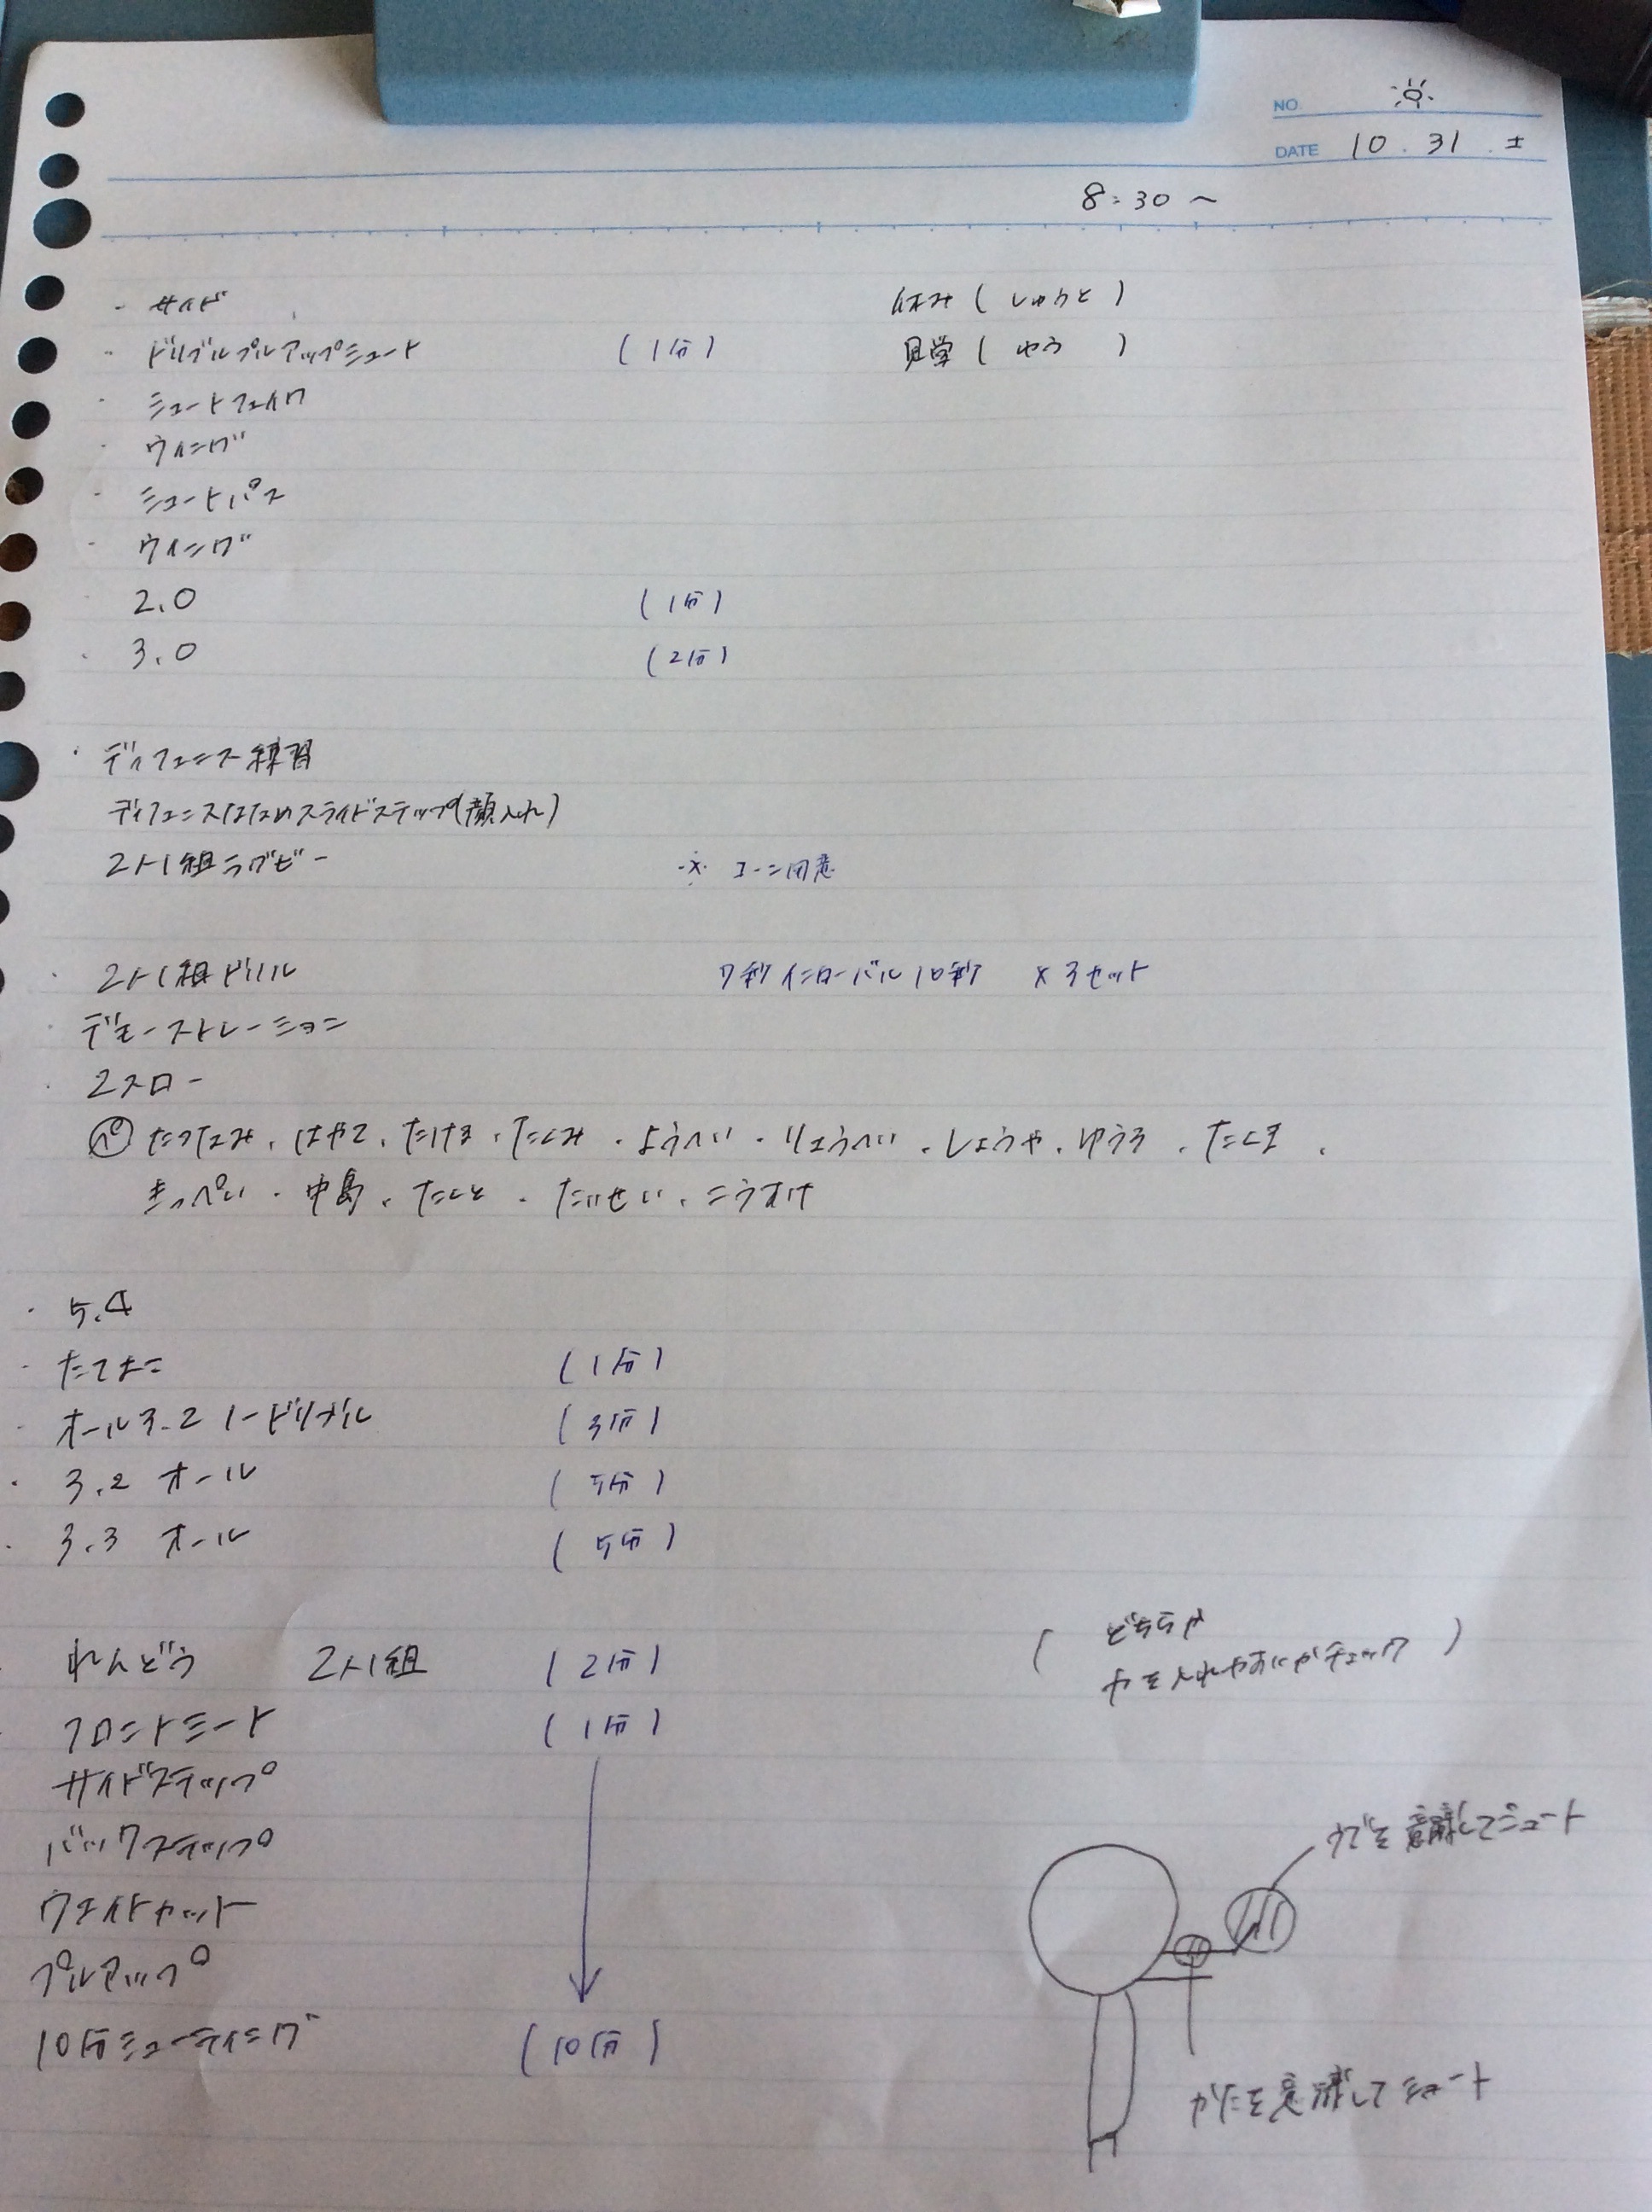 NO
DATE 10.31.土
8:30〜
・サイド
休み(しゅうと)
・ドリブルプルアップシュート (1分)
見学(ゆう )
・シュートフェイク
・ウィング
・シュートパス
・ウィング
2.0 (1分)
・3.0 (2分)
・ディフェンス練習
ディフェンスはためスライドステップ(顔入れ)
2人1組ラグビー ※コーン用意
・2人1組ドリル 7秒インターバル10秒 ×3セット
・デモンストレーション
・2スロー
たつなみ・はやて・たける・たくみ・ようへい・りょうへい・しょうや・ゆうろ・たくま・
きっぺい・中島・たくと・たいせい・こうすけ
・5.4
・たてよこ (1分)
・オール3.2ノードリブル (3分)
・3.2 オール (5分)
・3.3 オール (5分)
・れんどう 2人1組 (2分)
(どちらが
チェック)
・フロントミート (1分)
サイドステップ
バックステップ
ウェイトカット
プルアップ
10分シューティング (10分)
ウデを意識してシュート
かたを意識してシュート